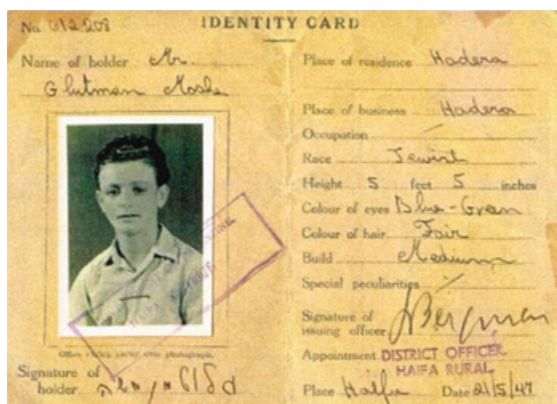 No. 012208
IDENTITY CARD
Name of holder Mr.
Glutman Moshe
Office stamp across photograph.
Signature of
holder גלוטמן משה
Place of residence Hadera
Place of business Hadera
Occupation
Race Jewish
Height 5 feet 5 inches
Colour of eyes Blue-Green
Colour of hair Fair
Build Medium
Special peculiarities
Signature of
issuing officer Bergman
Appointment DISTRICT OFFICER
HAIFA RURAL
Place Haifa Date 21/5/47